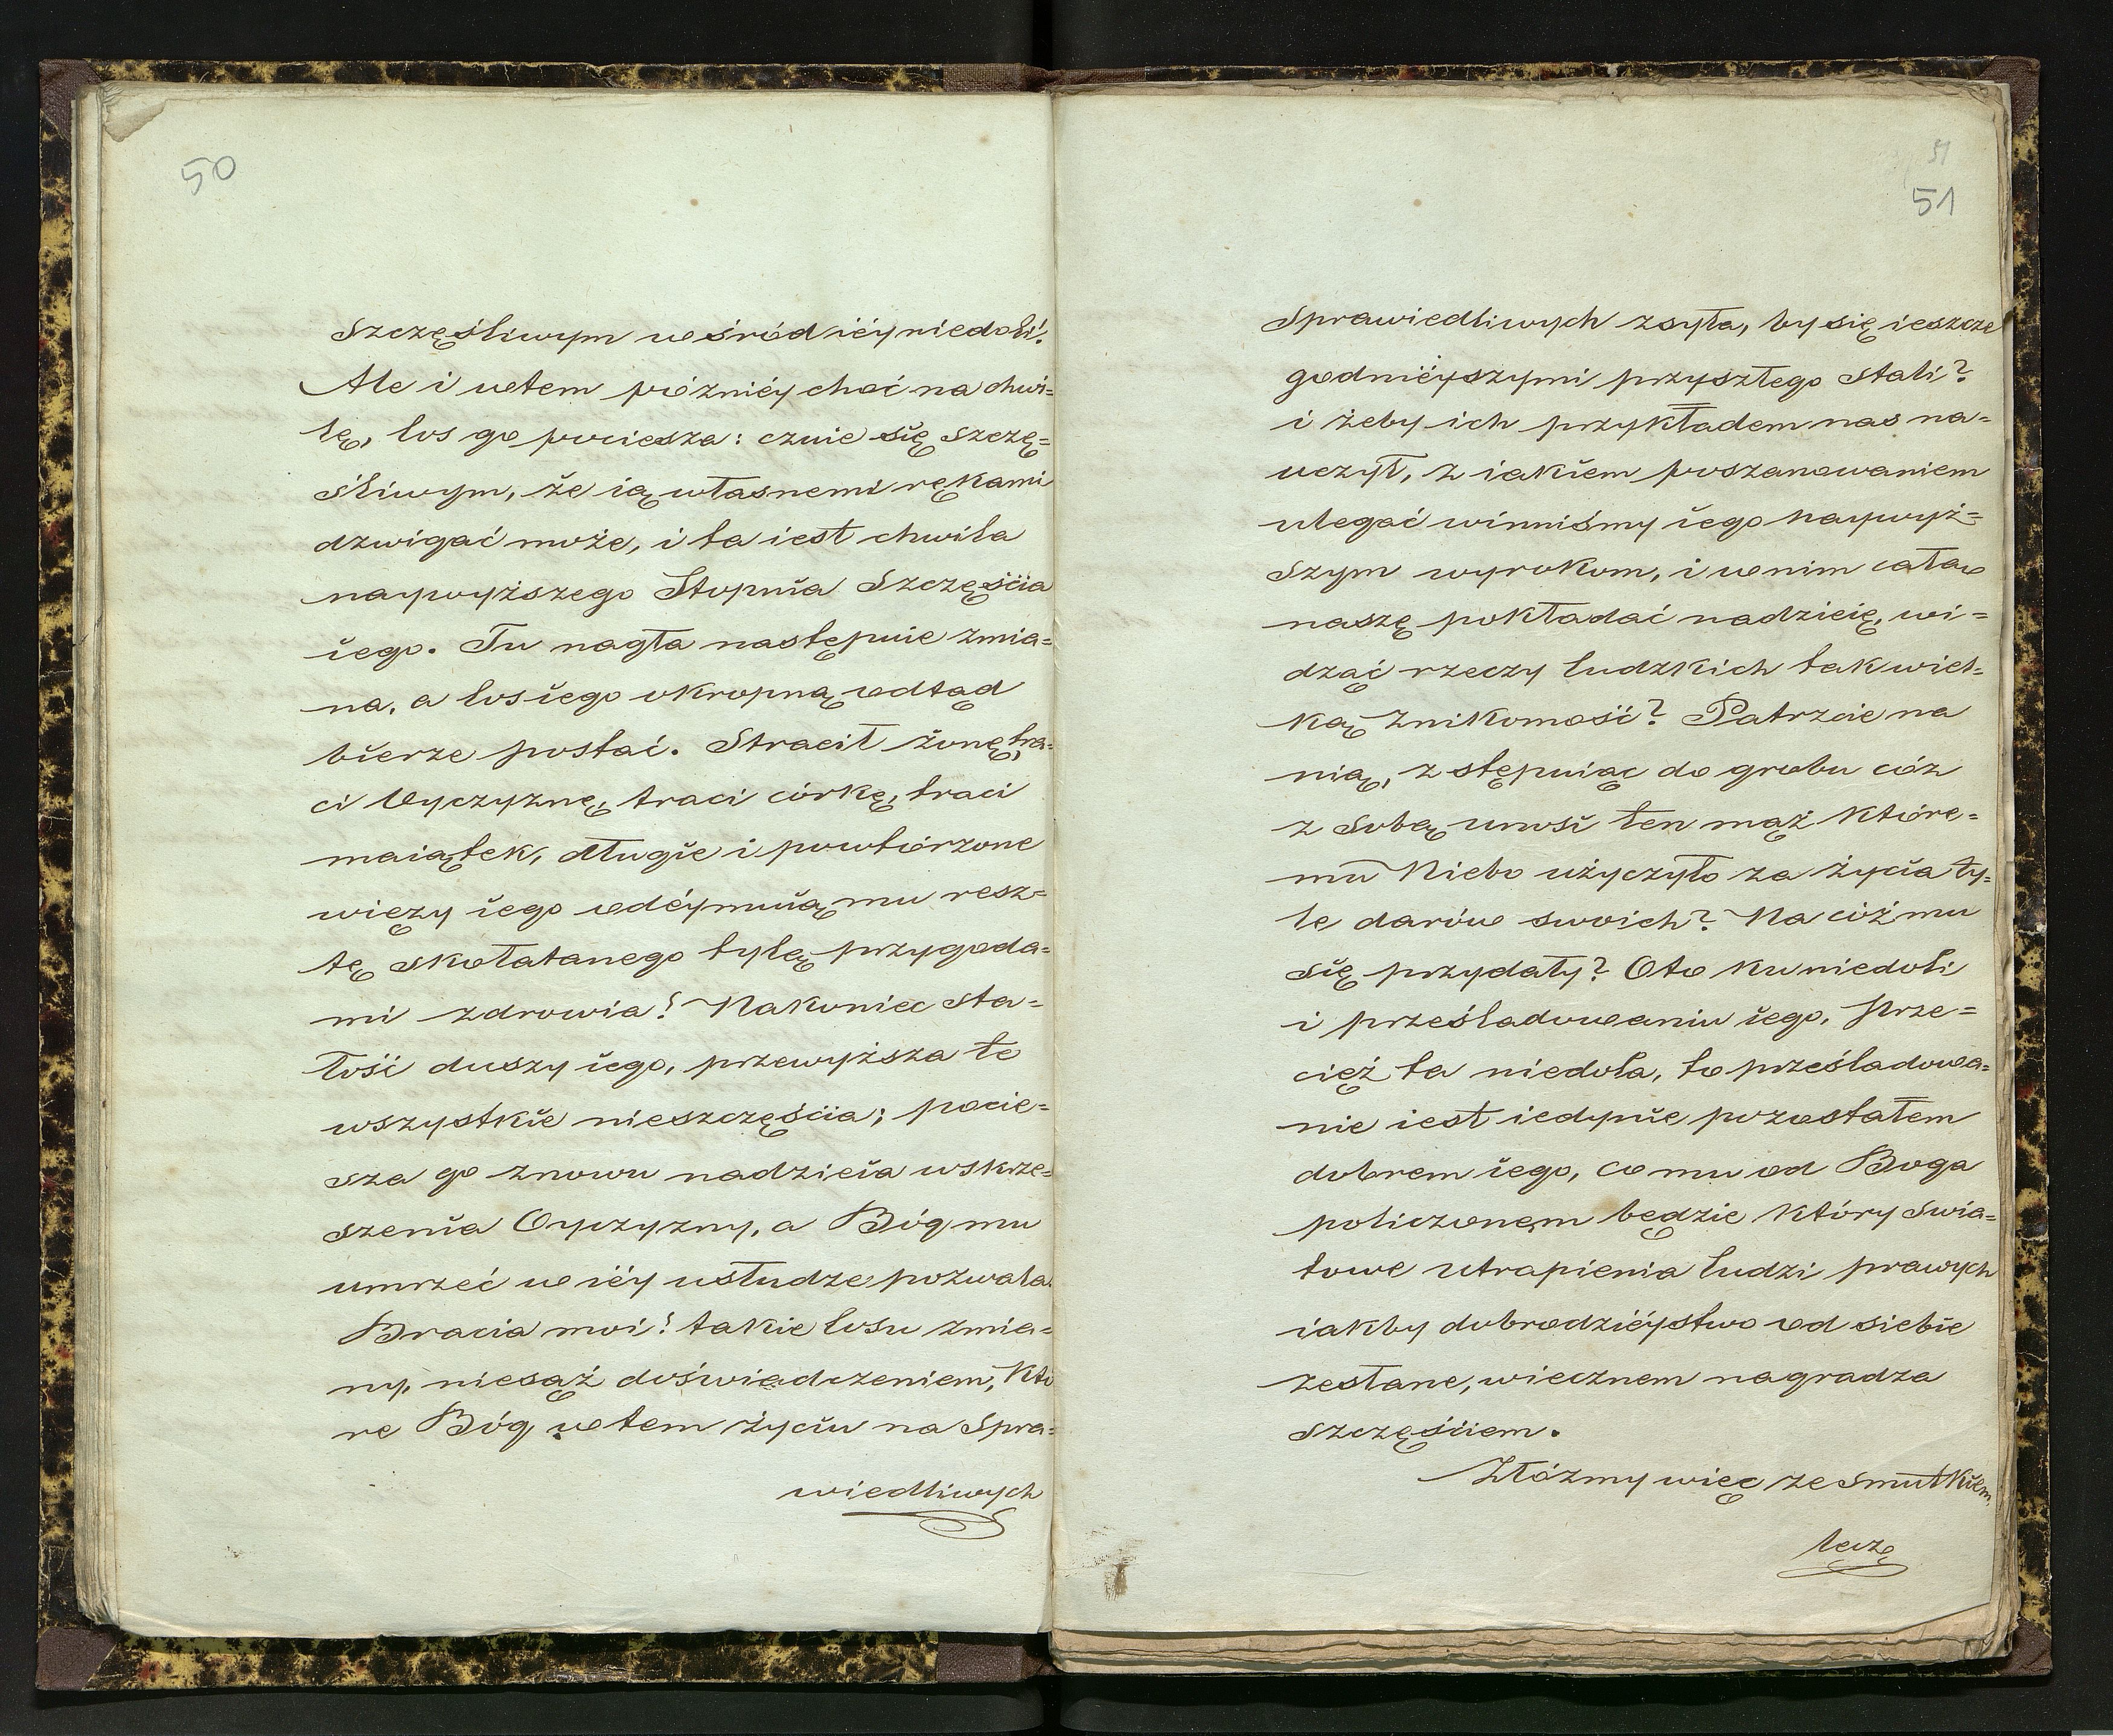 50
szczęśliwym wśród iéy niedoli!
Ale i wtem późniéy choć na chwi=
lę, los go pociesza: czuie się szczę=
śliwym, że ią własnemi rękami
dzwigać może, i ta iest chwila
naywyższego Stopnia Szczęścia
iego. Tu nagła następuie zmia=
na, a los iego okropną odtąd
bierze postać. Stracił żonę, tra=
ci Oyczyznę, traci córkę, traci
maiątek, długie i powtórzone
więzy iego odéymuią mu resz=
tę skołatanego tylą przygoda=
mi zdrowia! Nakoniec sta=
łość duszy iego, przewyższa te
wszystkie nieszczęścia; pocie=
sza go znowu nadzieia wskrze=
szenia Oyczyzny, a Bóg mu
umrzeć w iéy usłudze pozwala.
Bracia moi! takie losu zmia=
ny, niesąż doświadczeniem, Któ
re Bóg w tem życiu na Spra=
wiedliwych
51
51
Sprawiedliwych zsyła, by się ieszcze
godnieyszymi przyszłego stali?
i żeby ich przykładem nas na=
uczył, z iakiem poszanowaniem
ulegać winniśmy iego naywyż=
szym wyrokom, i w nim całą
naszę pokładać nadzieię, wi=
dząć rzeczy ludzkich tak wiel=
ką Znikomość? Patrzcie na
nią, zstępuiąc do grobu cóż
z sobą unosi ten mąż któré=
mū Niebo użyczyło za życia ty=
le darów swoich? Na cóż mu
się przydały? Oto ku niedoli
i prześladowaniu iego. Prze=
cięż ta niedola, to prześladowa=
nie iest iedynie pozostałem
dobrem iego, co mu od Boga
policzonem będzie który swia=
towe utrapienia ludzi prawych
iakby dobrodziéystwo od siebie
zesłane, wiecznem nagradza
szczęściem.
Złózmy więc ze smutkiem,
lecz